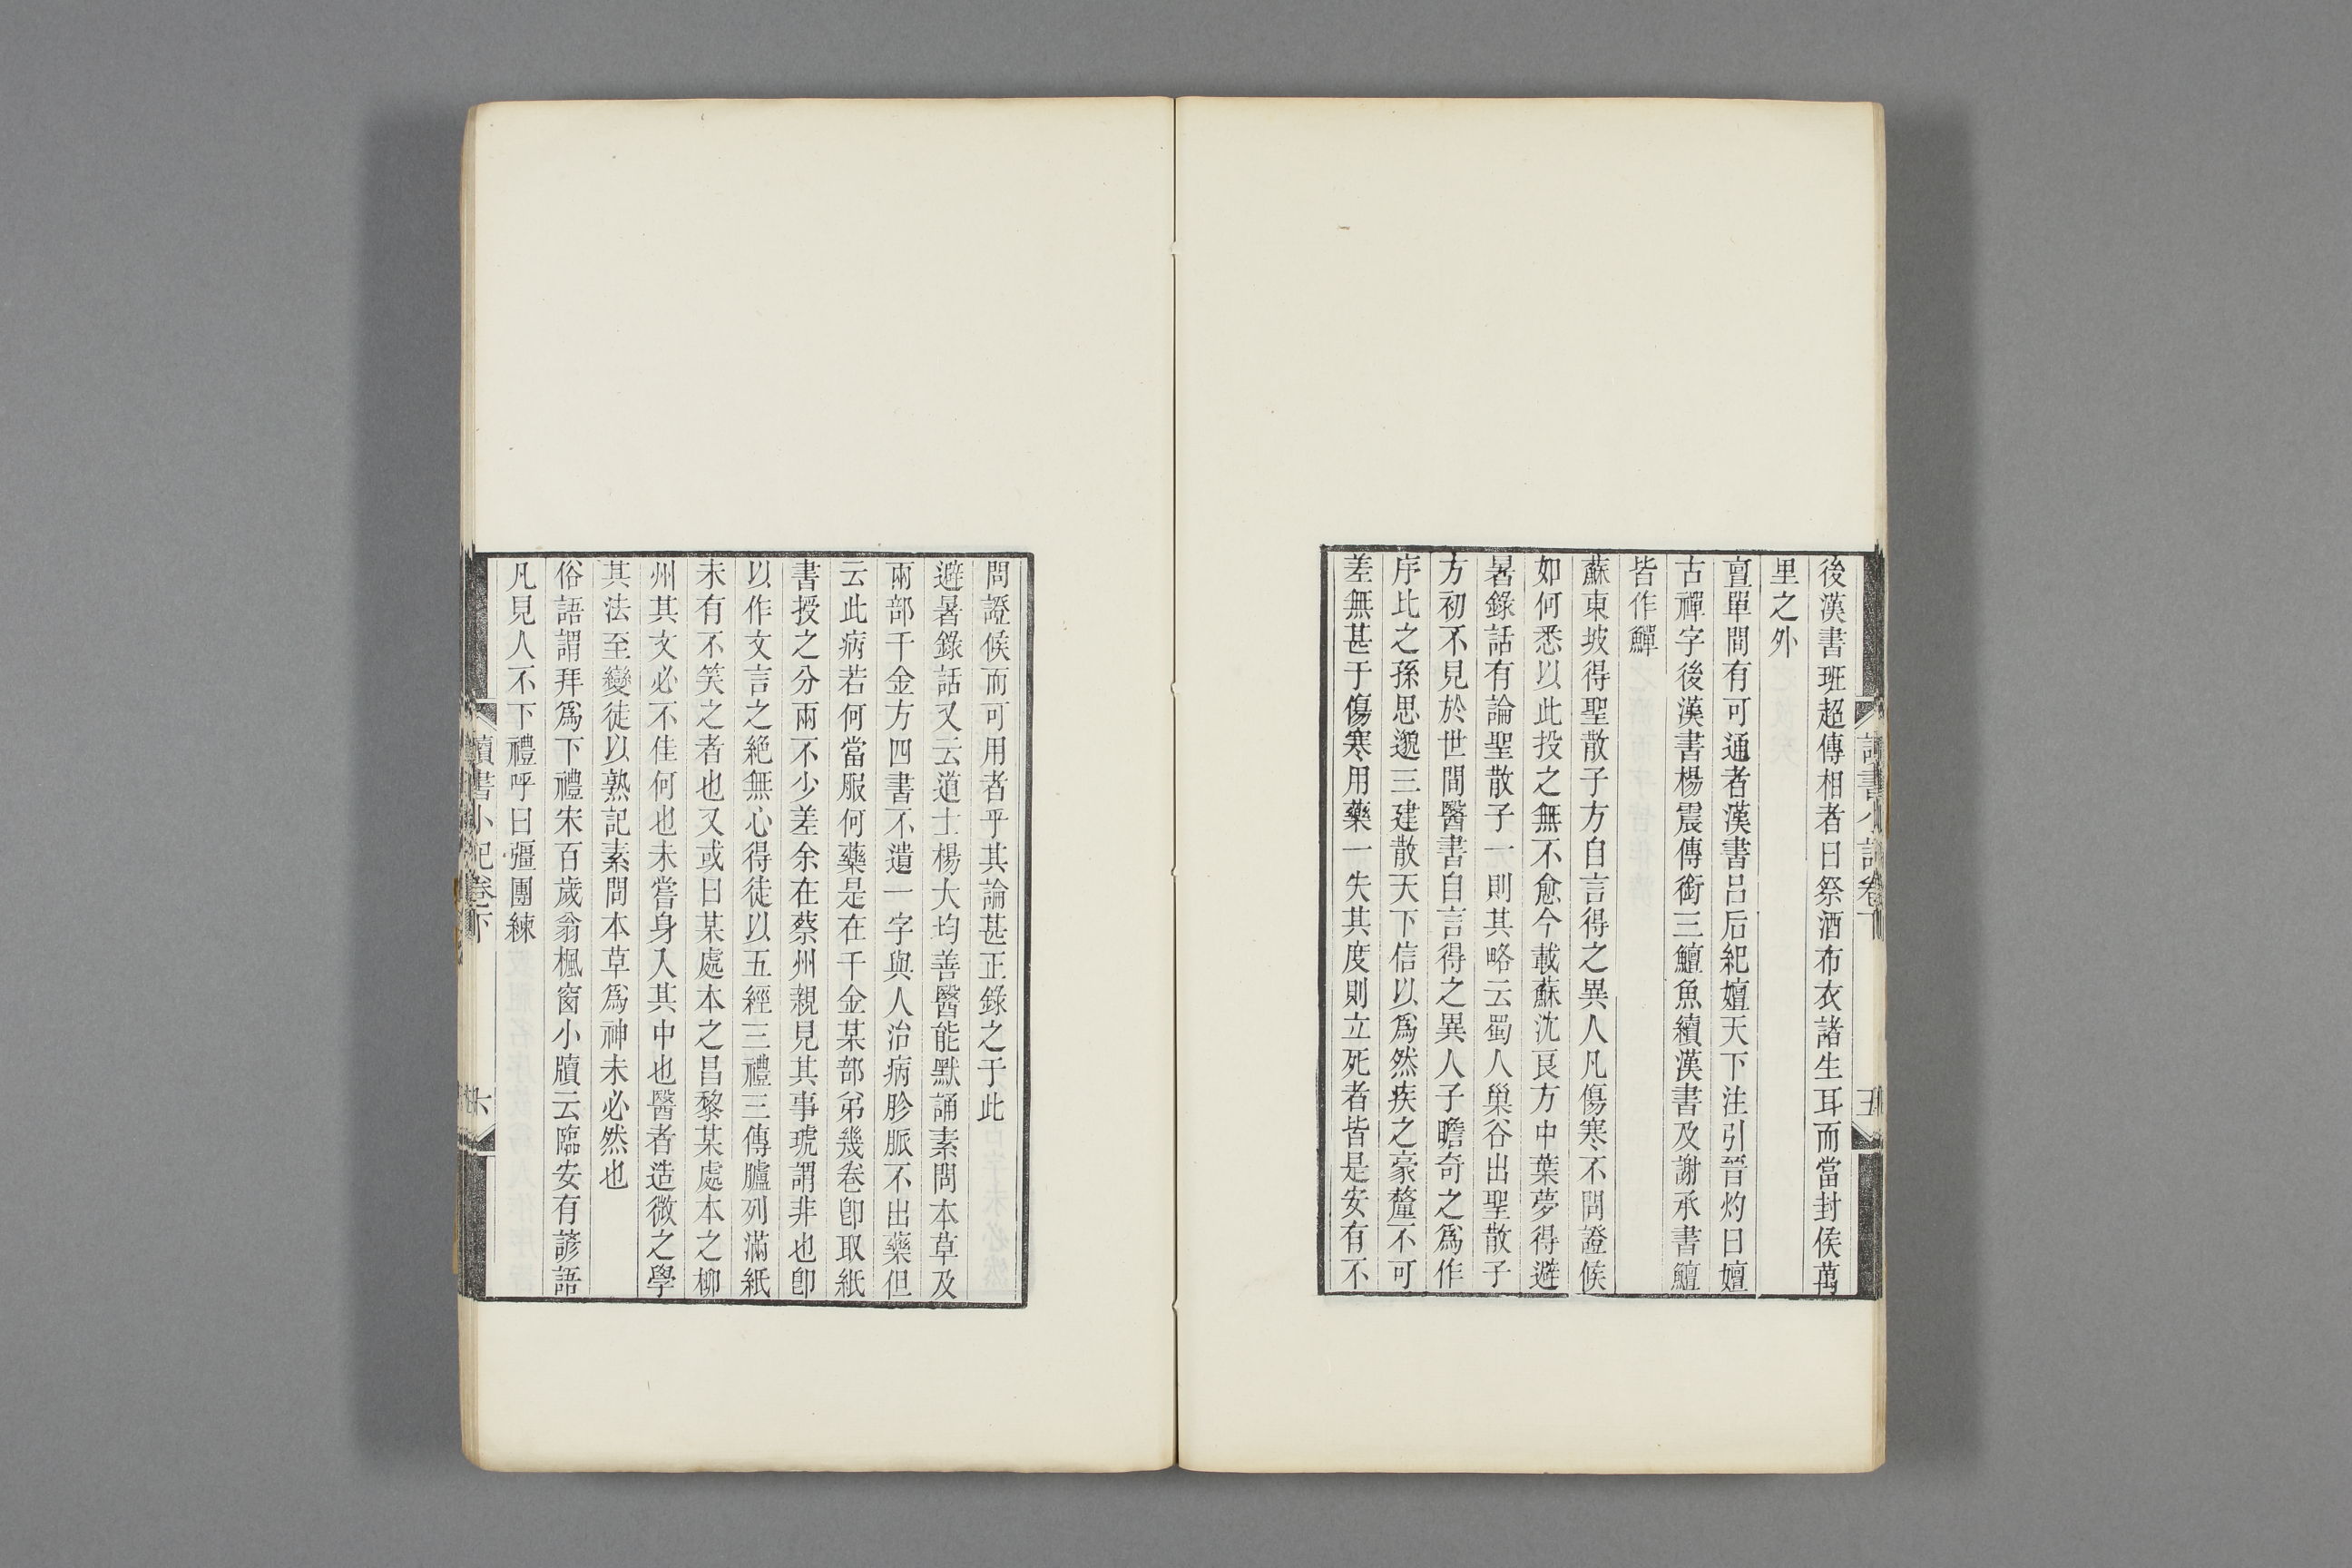 後漢書班超傳相者曰祭酒布衣諸生耳而當封侯萬
里之外
亶單間有可通者漢書呂后紀嬗天下注引晉灼曰嬗
古禪字後漢書楊震傳銜三鱣魚續漢書及謝承書鱣
皆作鱓
蘇東坡得聖散子方自言得之異人凡傷寒不問證候
如何悉以此投之無不愈今載蘇沈良方中葉夢得避
暑錄話有論聖散子一則其略云蜀人巢谷出聖散子
方初不見於世間醫書自言得之異人子瞻奇之爲作
序比之孫思邈三建散天下信以爲然疾之豪釐不可
差無甚于傷寒用藥一失其度則立死者皆是安有不
問證候而可用者乎其論甚正錄之于此
避暑錄話又云道士楊大均善醫能默誦素問本草及
兩部千金方四書不遺一字與人治病胗脈不出藥但
云此病若何當服何藥是在千金某部弟幾卷卽取紙
書授之分兩不少差余在蔡州親見其事琥謂非也卽
以作文言之絕無心得徒以五經三禮三傳臚列滿紙
未有不笑之者也又或曰某處本之昌黎某處本之柳
州其文必不佳何也未嘗身入其中也醫者造微之學
其法至變徒以熟記素問本草爲神未必然也
俗語謂拜爲下禮宋百歲翁楓窗小牘云臨安有諺語
凡見人不下禮呼曰彊團練
讀書小記卷下
六